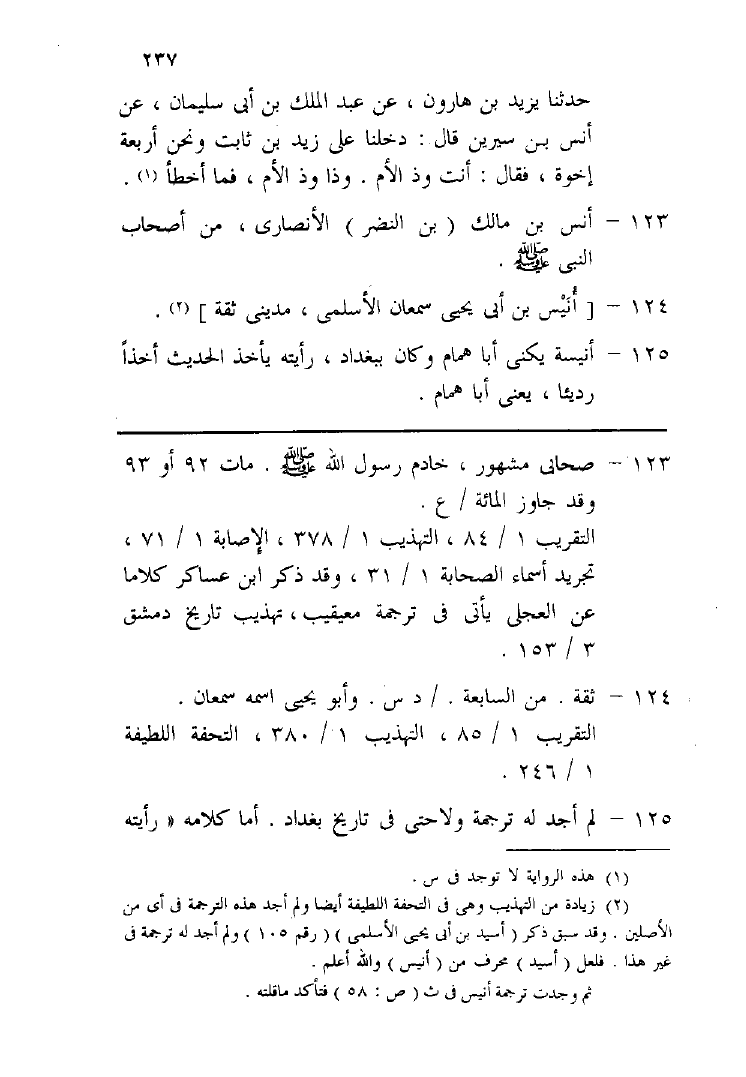 ٢٣٧
حدثنا يزيد بن هارون ، عن عبد الملك بن أبى سليمان ، عن
أنس بن سيرين قال : دخلنا على زيد بن ثابت ونحن أربعة
إخوة ، فقال : أنت وذ الأم . وذا وذ الأم ، فما أخطأ (١) .
١٢٣ – أنس بن مالك ( بن النضر ) الأنصارى ، من أصحاب
النبى ﷺ .
١٢٤ – [ أُنَيْس بن أبى يحيى سمعان الأسلمى ، مدينى ثقة ] (٢) .
١٢٥ – أنيسة يكنى أبا همام وكان ببغداد ، رأيته يأخذ الحديث أخذاً
رديئا ، يعنى أبا همام .
١٢٣ – صحابى مشهور ، خادم رسول الله ﷺ . مات ٩٢ أو ٩٣
وقد جاوز المائة / ع .
التقريب ١ / ٨٤ ، التهذيب ١ / ٣٧٨ ، الإصابة ١ / ٧١ ،
تجريد أسماء الصحابة ١ / ٣١ ، وقد ذكر ابن عساكر كلاما
عن العجلى يأتى فى ترجمة معيقيب ، تهذيب تاريخ دمشق
٣ / ١٥٣ .
١٢٤ – ثقة . من السابعة . / د س . وأبو يحيى اسمه سمعان .
التقريب ١ / ٨٥ ، التهذيب ١ / ٣٨٠ ، التحفة اللطيفة
١ / ٢٤٦ .
١٢٥ – لم أجد له ترجمة ولاحتى فى تاريخ بغداد . أما كلامه « رأيته
(١) هذه الرواية لا توجد فى س .
(٢) زيادة من التهذيب وهى فى التحفة اللطيفة أيضا ولم أجد هذه الترجمة فى أى من
الأصلين . وقد سبق ذكر ( أسيد بن أبى يحيى الأسلمى ) ( رقم ١٠٥ ) ولم أجد له ترجمة فى
غير هذا . فلعل ( أسيد ) محرف من ( أنيس ) والله أعلم .
ثم وجدت ترجمة أنيس فى ث ( ص : ٥٨ ) فتأكد ماقلته .